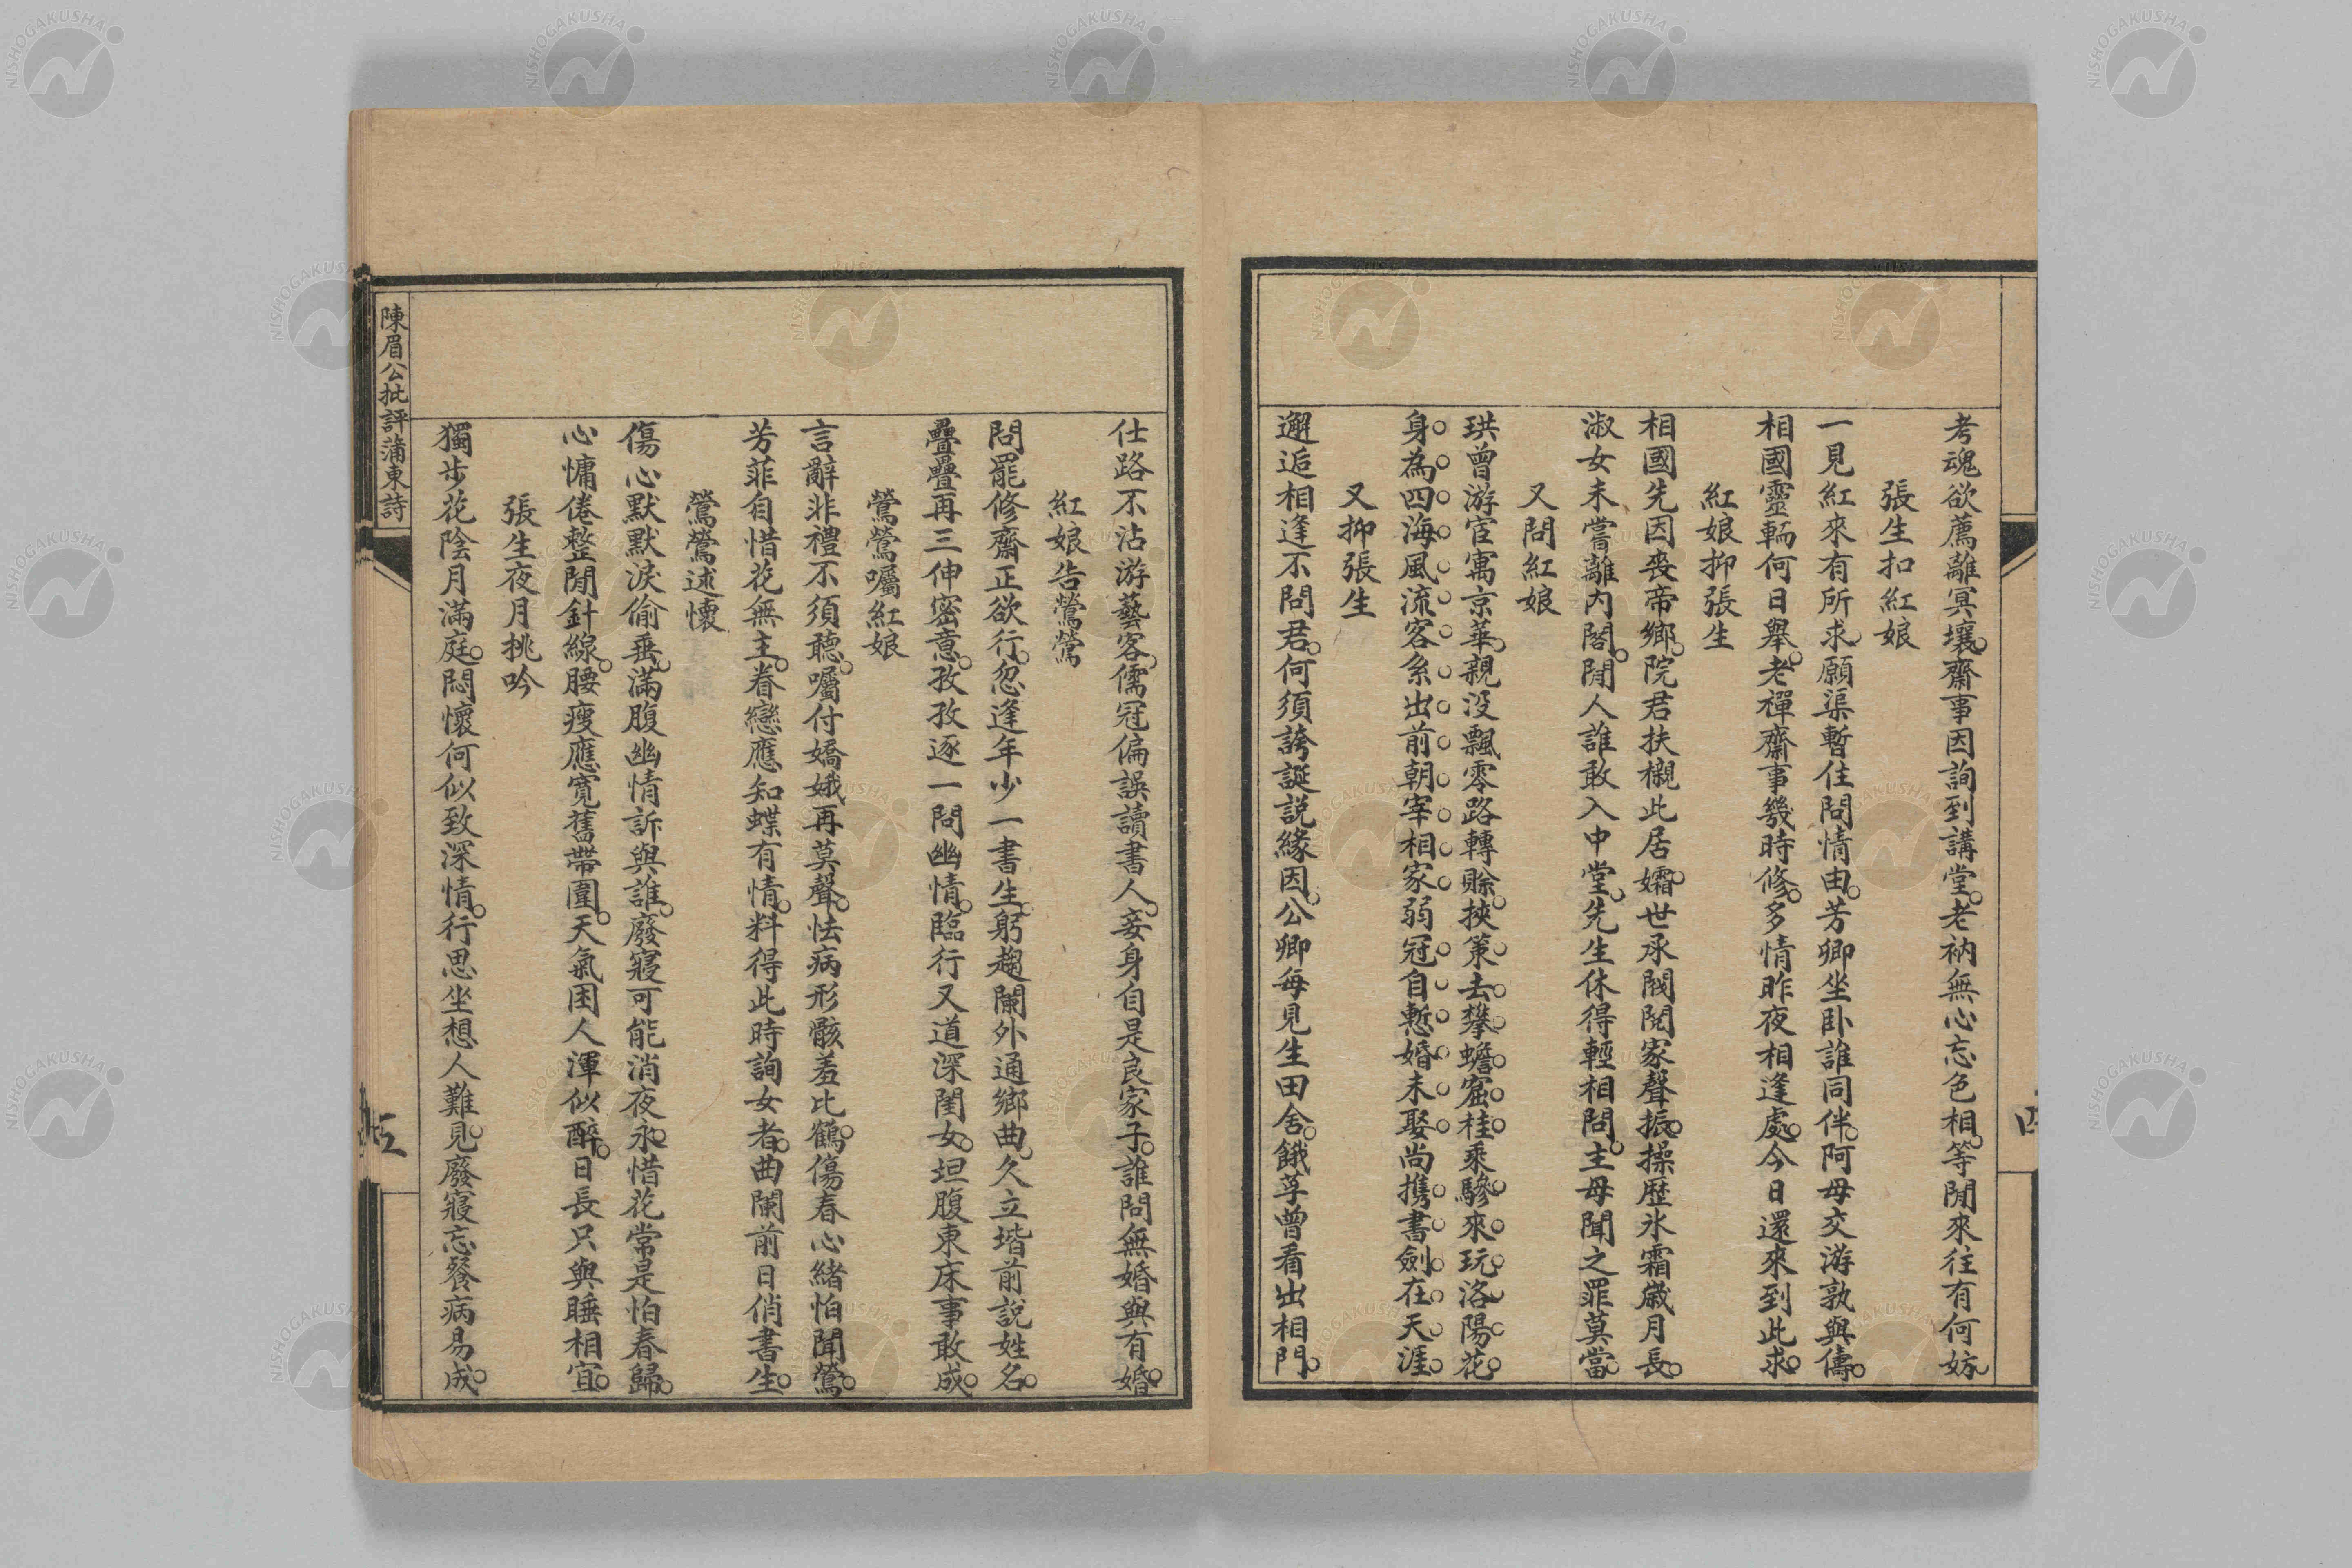 考魂欲薦離冥壤齋事因詢到講堂老衲無心忘色相等閒來往有何妨
張生扣紅娘
一見紅來有所求願渠暫住問情由芳卿坐臥誰同伴阿母交游孰與儔
相國靈輀何日舉老禪齋事幾時修多情昨夜相逢處今日還來到此求
紅娘抑張生
相國先因喪帝鄉院君扶櫬此居孀世承閥閱家聲振操歷氷霜歲月長
淑女未嘗離內閣閒人誰敢入中堂先生休得輕相問主母聞之罪莫當
又問紅娘
珙曾游宦寓京華親没飄零路轉賒挾策去攀蟾窟桂乘驂來玩洛陽花
身為四海風流客系出前朝宰相家弱冠自慙婚未娶尚携書劍在天涯
又抑張生
邂逅相逢不問君何須誇誕説緣因公卿每見生田舍餓莩曾看出相門
四
仕路不沾游藝客儒冠偏誤讀書人妾身自是良家子誰問無婚與有婚
紅娘告鶯鶯
問罷修齋正欲行忽逢年少一書生躬趨闌外通鄉曲久立堦前説姓名
疊疊再三伸密意孜孜逐一問幽情臨行又道深閨女坦腹東床事敢成
鶯鶯囑紅娘
言辭非禮不須聽囑付嬌娥再莫聲怯病形骸羞比鶴傷春心緒怕聞鶯
芳菲自惜花無主眷戀應知蝶有情料得此時詢女者曲闌前日俏書生
鶯鶯述懷
傷心默默淚偷垂滿腹幽情訴與誰廢寢可能消夜永惜花常是怕春歸
心慵倦整閒針線腰瘦應寬舊帶圍天氣困人渾似醉日長只與睡相宜
張生夜月挑吟
獨步花陰月滿庭悶懷何似致深情行思坐想人難見廢寢忘餐病易成
陳眉公批評蒲東詩
五